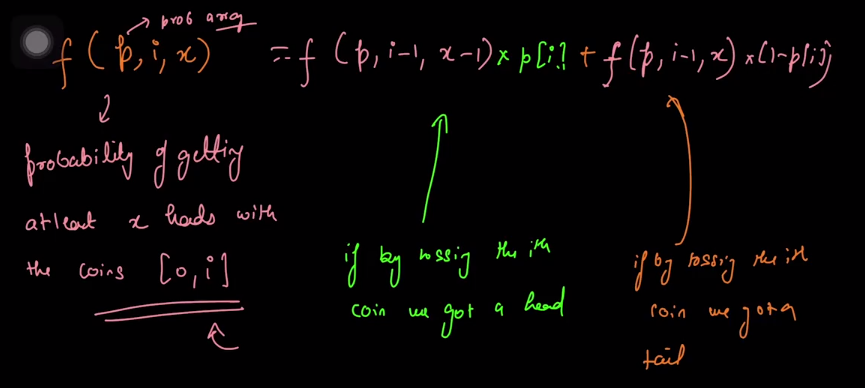 prob array
f (p, i, x) = f (p, i-1, x-1) x p[i] + f(p, i-1, x) x (1-p[i])
probability of getting
atleast x heads with
the coins [0, i]
if by tossig the ith
coin we got a head
if by tossig the ith
coin we got a
tail